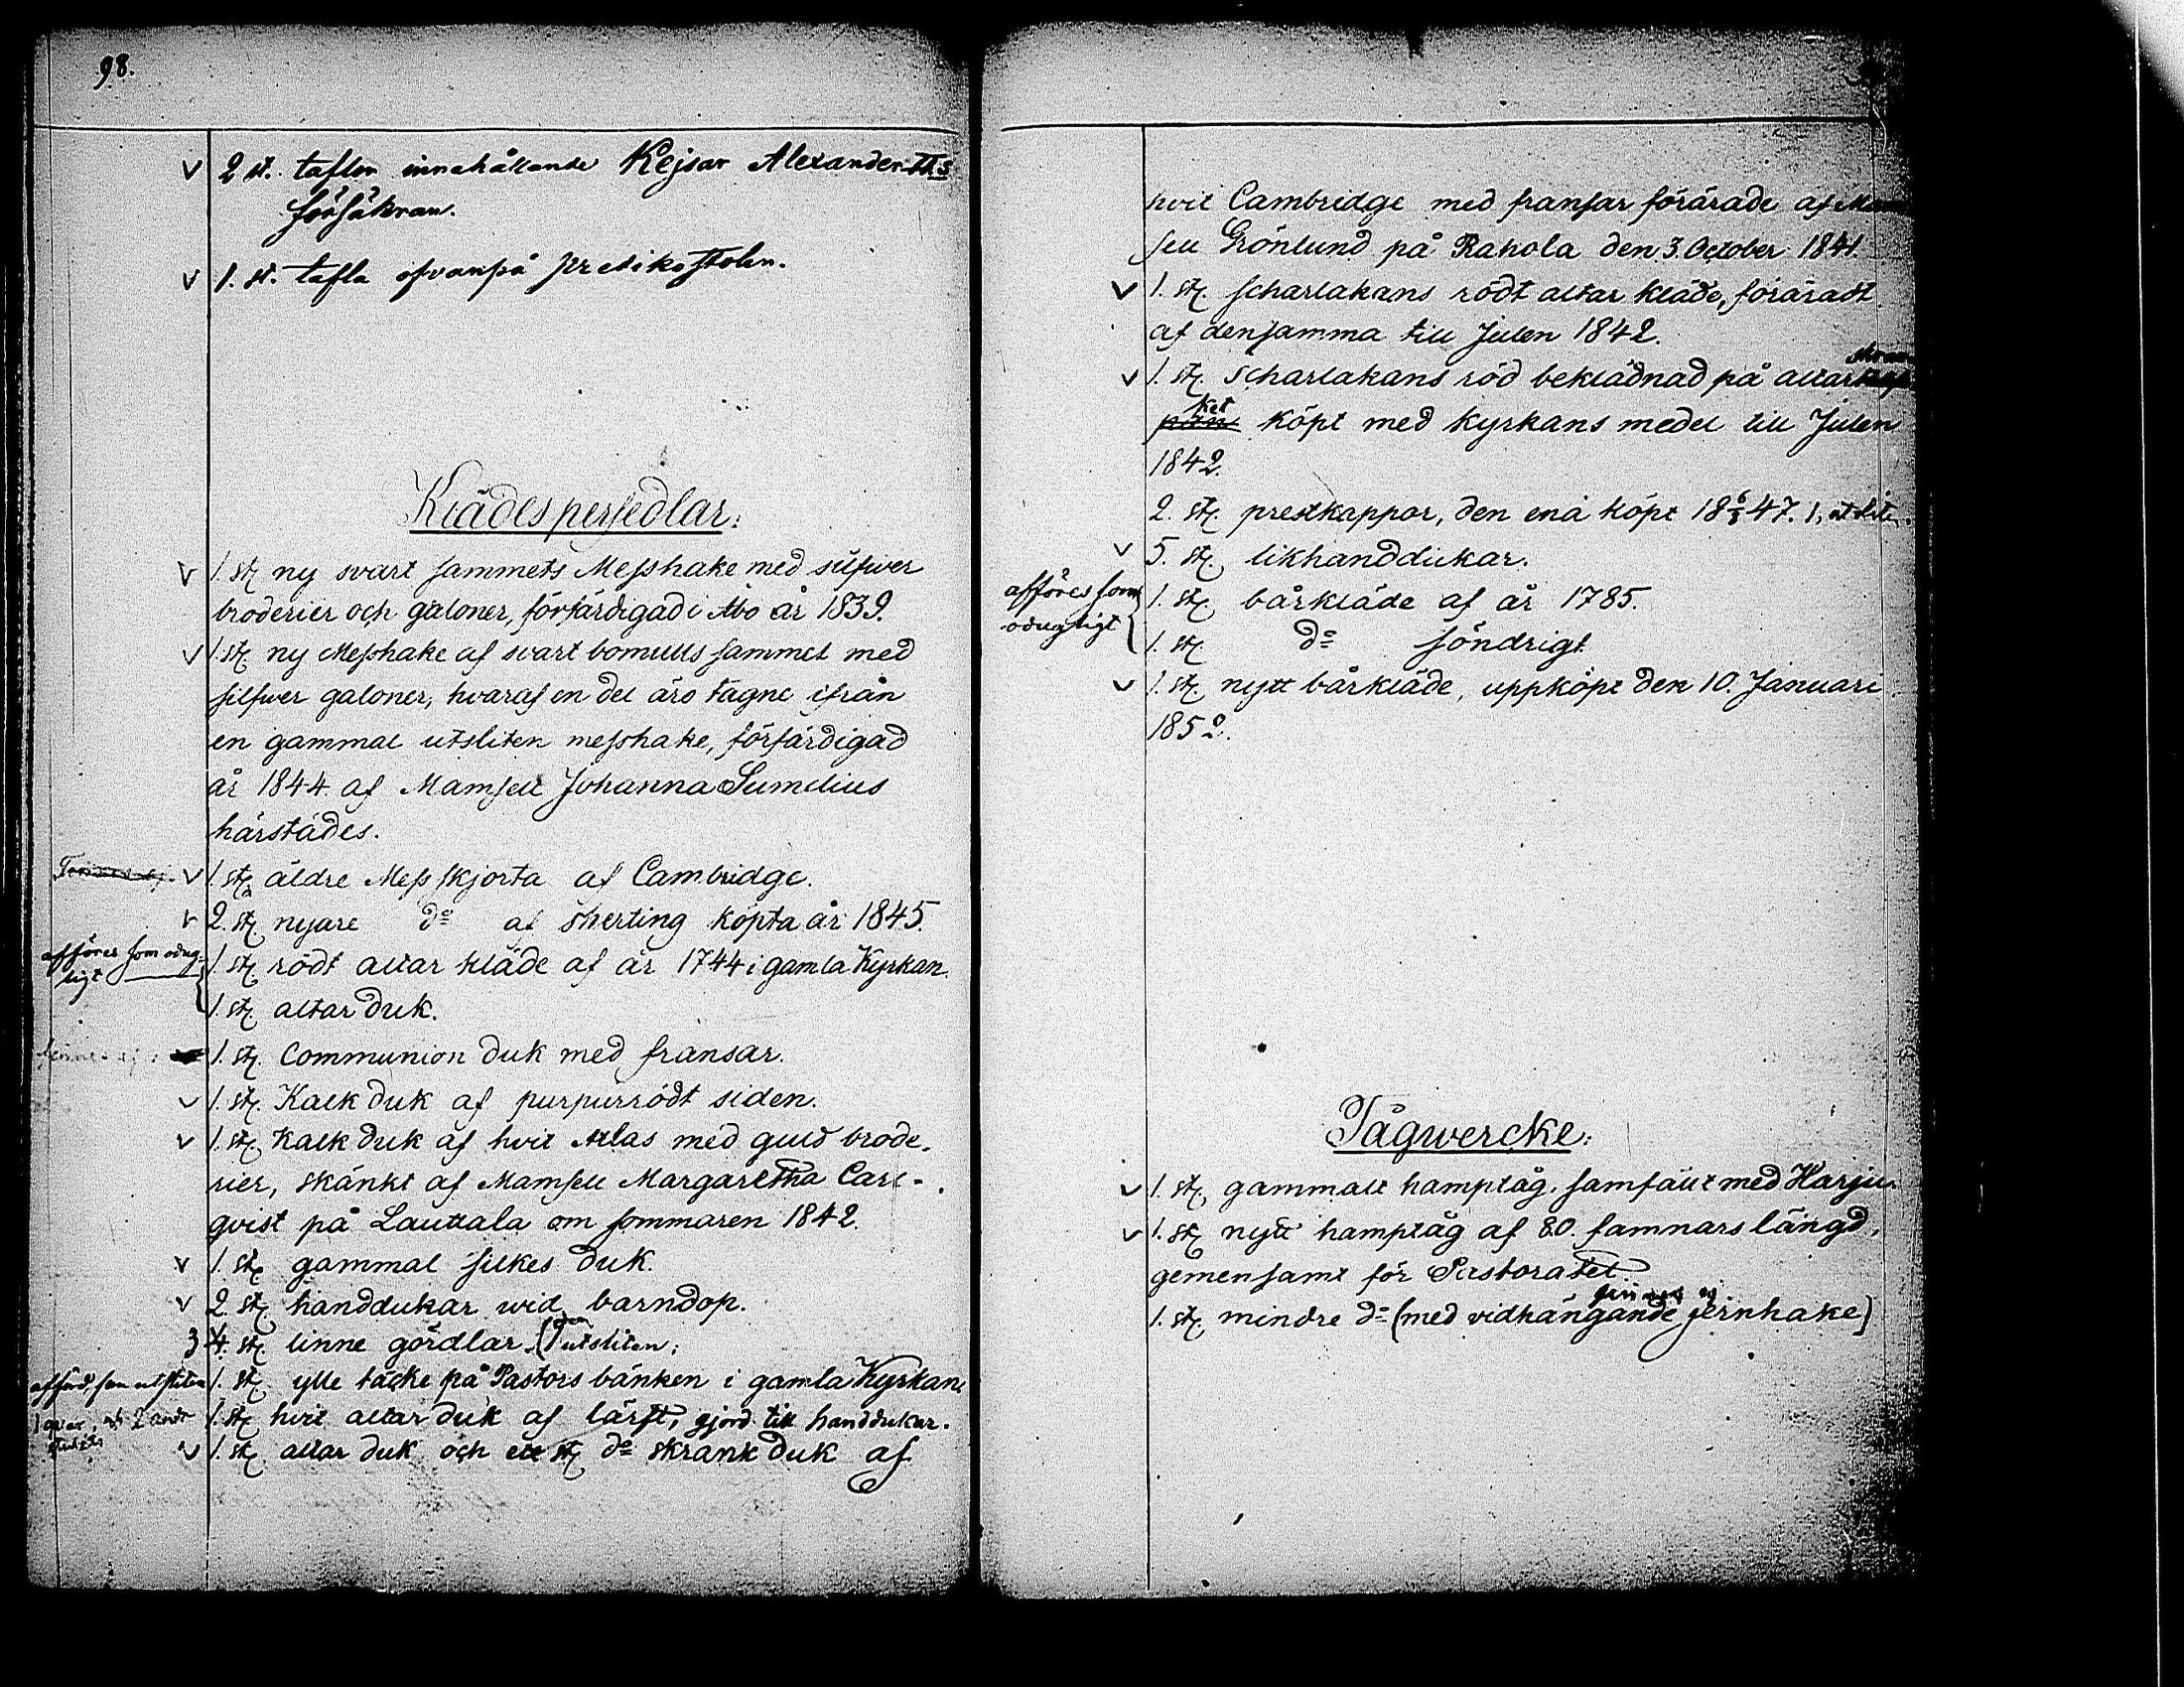 98.
v 2 st. taflor innehållande Kejsar Alexander
försäkran.
v 1. st. tafla ofvanpå predikostolen.
Klädespersedlar.
v 1. st. ny svart sammets Messhake med silfwer
broderier och galoner, förfärdigad i Åbo år 1839.
v 1. st. ny Messhake af svart bomulls sammet med
silfwer galoner, hvaraf en del äro tagne ifrån
en gammal utsliten messhake, förfärdigad
år 1844 af Mamsell Johanna Sumelius
härstädes.
v 1. st. äldre Messskjorta af Cambridge.
v 2. st. nyare do af sherting köpta år 1845.
afföres som odug- 1. st. rödt altar kläde af år 1744 i gamla Kyrkan.
ligt 1. st. altar duk.
1. st. Communion duk med fransar.
v 1. st. Kalk duk af purpurrödt siden.
v 1. st. Kalk duk af hvit Atlas med guld brode-
rier, skänkt af Mamsell Margaretha Carl-
qvist på Lauttala om sommaren 1842.
v 1. st. gammal silkes duk.
v 2. st. handdukar wid barndop.
3 4. st. linne gördlar. (1 utsliten.
afförd, som utsliten 1. st. ylle täcke på Pastors bänken i gamla Kyrkan.
1. st. hvit altar duk af lärft, gjord till handdukar.
v 1. st. altar duk och ett st. do skrank duk af
hvit Cambridge med fransar förärade af Mam
sell Grönlund på Rahola den 3. October 1841.
v 1. st. scharlakans rödt altar kläde, föräradt
af densamma till Julen 1842.
v 1. st. scharlakans röd beklädnad på altar
ket köpt med kyrkans medel till Julen
1842.
2. st. prestkappor, den ena köpt 18 6/3 47. 1, utsliten.
v 5. st. likhanddukar.
afföres som 1. st. bårkläde af år 1785.
odugligt 1. st. do söndrigt
v 1. st. nytt bårkläde, uppköpt den 10. Januari
1852.
Tågwercke.
v 1. st. gammalt hamptåg. samfällt med Harju
v 1. st. nytt hamptåg af 80. famnars längd,
gemensamt för Pastoratet.
finnes ej
1. st. mindre do (med vidhängande jernhake)